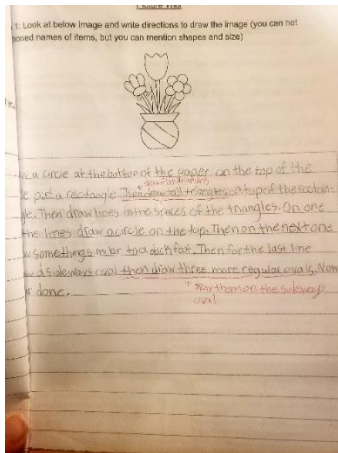 Picture This
1: Look at below image and write directions to draw the image (you can not
names of items, but you can mention shapes and size)
a circle at the bottom of the paper on the top of the
put a rectangle. Then draw small triangles on top of the rectan-
le. Then draw lines in the spaces of the triangles. On one
the lines draw a circle on the top. Then on the next one
something similar to a duck foot. Then for the last line
a sideways oval then draw three more regular ovals. Now
done.
draw them on the sideways
oval